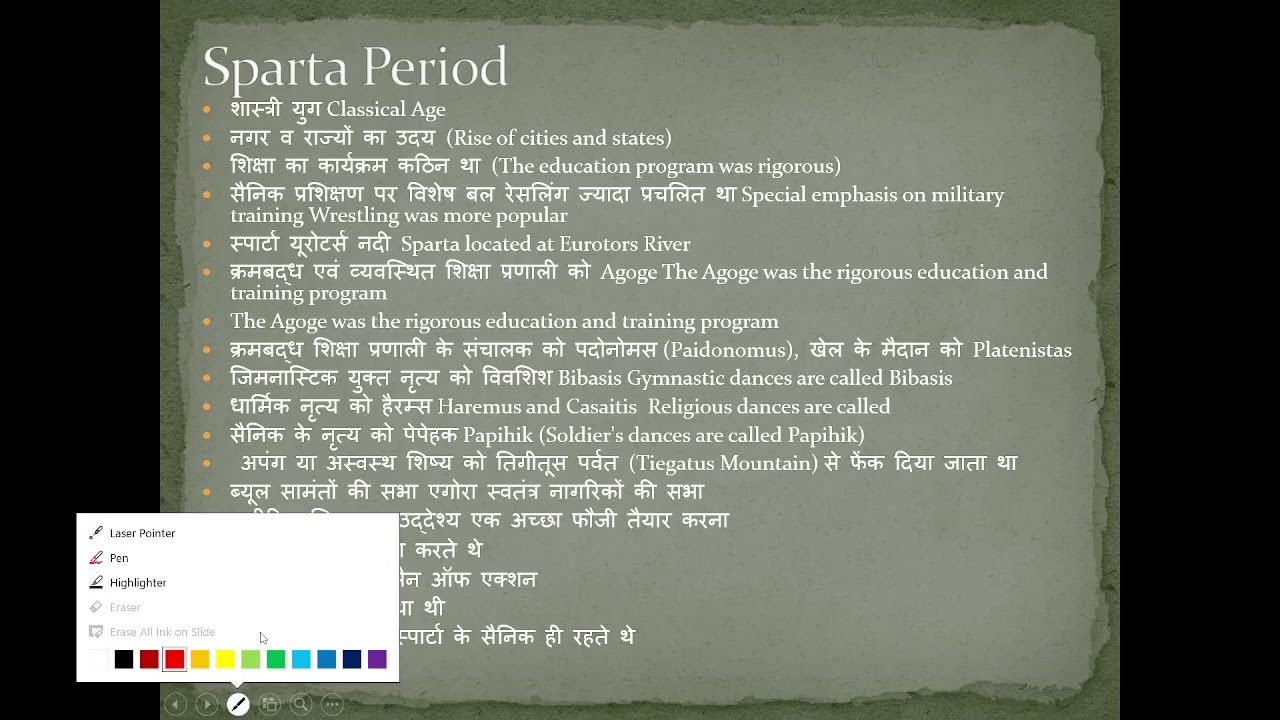 Sparta Period
शास्त्री युग Classical Age
नगर व राज्यों का उदय (Rise of cities and states)
शिक्षा का कार्यक्रम कठिन था (The education program was rigorous)
सैनिक प्रशिक्षण पर विशेष बल रेसलिंग ज्यादा प्रचलित था Special emphasis on military
training Wrestling was more popular
स्पार्टा यूरोटर्स नदी Sparta located at Eurotors River
क्रमबद्ध एवं व्यवस्थित शिक्षा प्रणाली को Agoge The Agoge was the rigorous education and
training program
The Agoge was the rigorous education and training program
क्रमबद्ध शिक्षा प्रणाली के संचालक को पदोनोमस (Paidonomus), खेल के मैदान को Platenistas
जिमनास्टिक युक्त नृत्य को विवशिश Bibasis Gymnastic dances are called Bibasis
धार्मिक नृत्य को हैरम्स Haremus and Casaitis Religious dances are called
सैनिक के नृत्य को पेपेहक Papihik (Soldier's dances are called Papihik)
अपंग या अस्वस्थ शिष्य को तिगीतूस पर्वत (Tiegatus Mountain) से फेंक दिया जाता था
ब्यूल सामंतों की सभा एगोरा स्वतंत्र नागरिकों की सभा
उद्देश्य एक अच्छा फौजी तैयार करना
करते थे
ऑफ एक्शन
थी
स्पार्टा के सैनिक ही रहते थे
Laser Pointer
Pen
Highlighter
Eraser
Erase All Ink on Slide